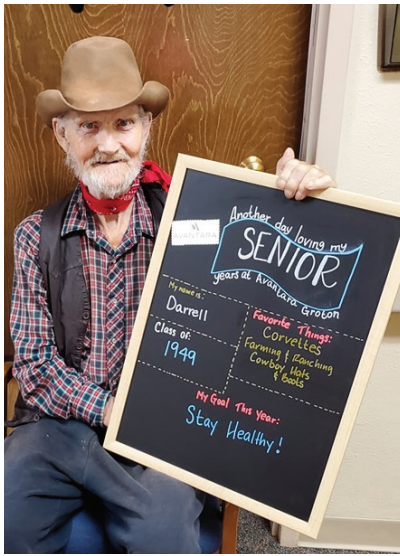 AVANTARA
Another day loving my
SENIOR
years at Avantara Groton
My name is:
Darrell
Class of:
1949
Favorite Things:
Corvettes
Farming & Ranching
Cowboy Hats
& Boots
My Goal This Year:
Stay Healthy!